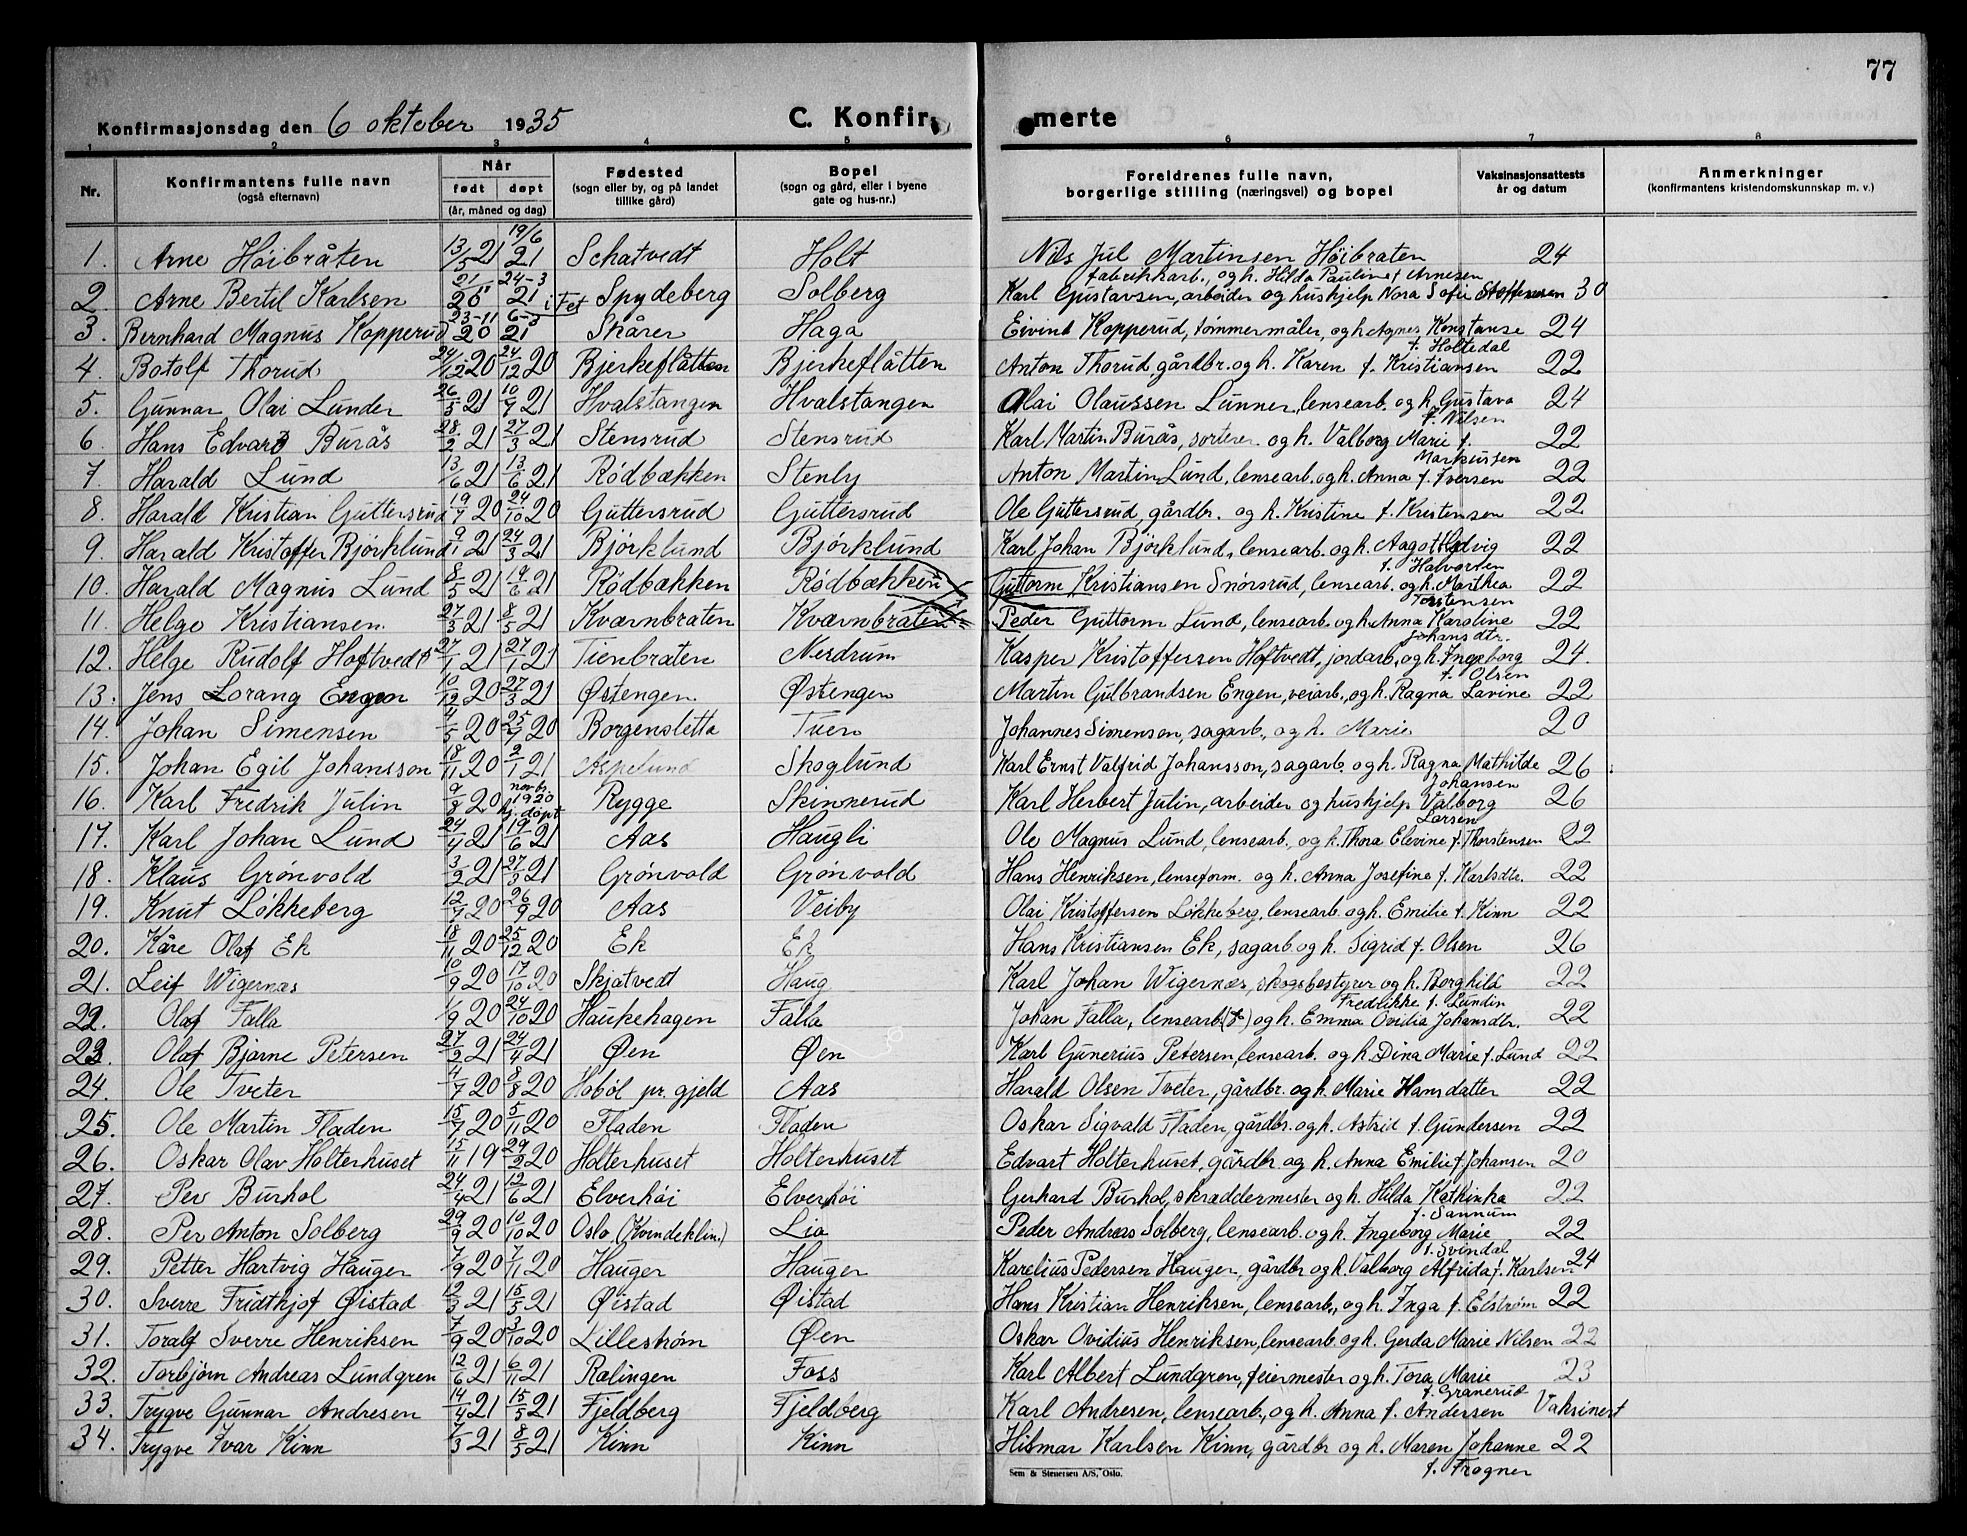 77
Konfirmasjonsdag den 6 oktober 1935 C. Konfir merte
1 2 3 4 5 6 7 8
Nr. Konfirmantens fulle navn (også efternavn) Når født døpt (år, måned og dag) Fødested (sogn eller by, og på landet tillike gård) Bopel (sogn og gård, eller i byene gate og hus-nr.) Foreldrenes fulle navn, borgerlige stilling (næringsvei) og bopel Vaksinasjonsattests år og datum Anmerkninger (konfirmantens kristendomskunnskap m. v.)
1. Arne Höibråten 13/5 21 19/6 21 Schatvedt Holt Nils Jul Martinsen Höibraten 24
fabrikkarb., og h. Hilda Pauline f Arnesen
2. Arne Bertil Karlsen 20 24-3 21 i Fet Spydeberg Solberg Karl Gustavsen, arbeider og hushjelp Nora Sofie Stoffensen 30
3. Bernhard Magnus Kopperud 23-11 20 21 Skårer Haga Eivind Kopperud, tømmermåler, og h Agnes Konstanse 24
f. Holtedal
4. Botolf Thorud 24/12 20 24/12 20 Bjerkeflåtten Bjerkeflåtten Anton Thorud, gårdbr. og h. Karen f. Kristiansen 22
5. Gunnar Olai Lunder 26/5 21 10/7 21 Hvalstangen Hvalstangen Olai Olaussen Lunner, lensearb. og h. Gustava 24
f. Nilsen
6. Hans Edvard Burås 28/2 21 27/3 21 Stensrud Stensrud Karl Martin Burås, sorterer og h. Valborg Marie f. 22
Markussen
7. Harald Lund 13/6 21 13/6 21 Rødbækken Stenby Anton Martin Lund, lensearb. og h. Anna f. Iversen 22
8. Harald Kristian Guttersrud 19/7 20 24/10 20 Guttersrud Guttersrud Ole Guttersrud, gårdbr. og h. Kristine f. Kristensen 22
9. Harald Kristoffer Bjørklund 9/1 21 24/3 21 Bjørklund Bjørklund Karl Johan Bjørklund, lensearb. og h. Aagot Hedvig 22
f. Halvorsen
10. Harald Magnus Lund 8/5 21 19/6 21 Rødbækken Rødbækken Guttorm Kristiansen Snørsrud, lensearb. og h. Marthea 22
Torstensen
11. Helge Kristiansen 27/3 21 8/5 21 Kværnbraten Kværnbraten Peder Guttorm Lund, lensearb. og h. Anna Karoline 22
Johansdtr.
12. Helge Rudolf Hoftvedt 27/1 21 27/1 21 Tienbraten Nerdrum Kasper Kristoffersen Hoftvedt, jordarb., og h. Ingeborg 24.
f. Olsen
13. Jens Lorang Engen 10/12 20 27/3 21 Østengen Østengen Martin Gulbrandsen Engen, veiarb., og h. Ragna Lavine 22
14. Johan Simensen 4/5 20 25/7 20 Borgensletta Tuen Johannes Simensen, sagarb., og h. Marie 20
15. Johan Egil Johansson 18/11 20 2/1 21 Aspelund Skoglund Karl Ernst Valfrid Johansson, sagarb. og h. Ragna Mathilde 26
Johansen
16. Karl Fredrik Julin 9/8 20 novbr. 1920 hj. døpt Rygge Skinnerud Karl Herbert Julin, arbeider og hushjelp Valborg 26
Larsen
17. Karl Johan Lund 24/4 21 19/6 21 Aas Haugli Ole Magnus Lund, lensearb. og h. Thora Elevine f. Thorstensen 22
18. Klaus Grønvold 3/2 21 27/3 21 Grønvold Grønvold Hans Henriksen, lenseform. og h. Anna Josefine f. Karlsdtr. 22
19. Knut Løkkeberg 12/7 20 26/9 20 Aas Veiby Olai Kristoffersen Løkkeberg, lensearb. og h. Emilie f. Kinn 22
20. Kåre Olaf Ek 18/11 20 25/12 20 Ek Ek Hans Kristiansen Ek, sagarb og h. Sigrid f. Olsen 26
21. Leif Wigernæs 10/9 20 17/10 20 Skjatvedt Haug Karl Johan Wigernæs, skogsbestyrer og h. Borghild 22
Fredrikke f. Lundin
22. Olaf Falla 1/9 20 24/10 20 Haukehagen Falla Johan Falla, lensearb. (f) og h. Emma Ovidia Johansdtr. 22
23. Olaf Bjarne Petersen 27/2 21 24/4 21 Øen Øen Karl Gunerius Petersen, lensearb. og h. Dina Marie f. Lund 22
24. Ole Tveter 4/7 20 8/8 20 Hobøl pr. gjeld Aas Harald Olsen Tveter, gårdbr. og h. Marie Hansdatter 22
25. Ole Martin Fladen 15/7 20 5/11 20 Fladen Fladen Oskar Sigvald Fladen, gårdbr. og h. Astrid f. Gundersen 22
26. Oskar Olav Holterhuset 15/11 19 29/2 20 Holterhuset Holterhuset Edvart Holterhuset, gårdbr og h. Anna Emilie f. Johansen 20
27. Per Burhol 24/4 21 12/6 21 Elverhöi Elverhöi Gerhard Burhol, skræddermester og h. Hilda Kathinka 22
f. Sannum
28. Per Anton Solberg 29/9 20 10/10 20 Oslo (Kvindeklin.) Lia Peder Andreas Solberg, lensearb. og h. Ingeborg Marie 22
f. Svindal
29. Petter Hartvig Hauger 7/9 20 7/11 20 Hauger Hauger Karelius Pedersen Hauger, gårdbr og h. Valborg Alfrida f. Karlsen 24
30. Sverre Fridthjof Øistad 12/3 21 15/5 21 Øistad Øistad Hans Kristian Henriksen, lensearb., og h. Inga f. Elstrøm 22
31. Toralf Sverre Henriksen 7/9 20 3/10 20 Lillestrøm Øen Oskar Ovidius Henriksen, lensearb. og h. Gerda Marie Nilsen 22
32. Torbjørn Andreas Lundgren 12/6 21 6/11 21 Rælingen Foss Karl Albert Lundgren, feiermester og h. Tora Marie 23
f. Granerud
33. Trygve Gunnar Andresen 14/4 21 15/5 21 Fjeldberg Fjeldberg Karl Andresen, lensearb., og h. Anna f. Andersen Vaksinert
34. Trygve Ivar Kinn 7/3 21 8/5 21 Kinn Kinn Hilmar Karlsen Kinn, gårdbr og h. Maren Johanne 22
f. Frogner
Sem & Stenersen A/S, Oslo.